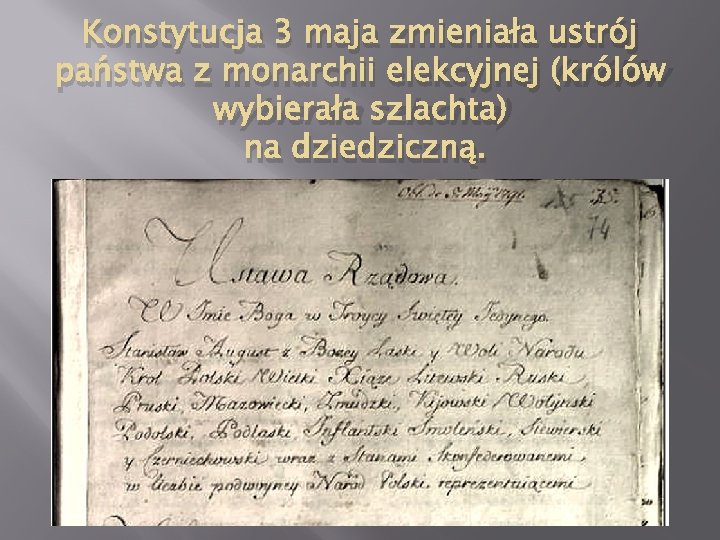 Konstytucja 3 maja zmieniała ustrój
państwa z monarchii elekcyjnej (królów
wybierała szlachta)
na dziedziczną.
35.
74
Ustawa Rządowa.
W Imie Boga w Troycy Swiętey Jedynego.
Stanisław August z Bożey Łaski y Woli Narodu
Krol Polski, Wielki Xiąże Litewski, Ruski,
Pruski, Mazowiecki, Zmudzki, Kijowski, Wołyński
Podolski, Podlaski, Inflantski, Smoleński, Siewierski
y Czerniechowski wraz z Stanami Skonfederowanemi
w liczbie podwoyney Naród Polski reprezentuiącemi